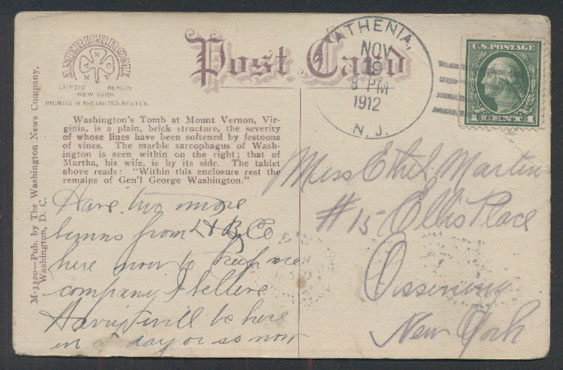 AMERICHROME
LEIPZIG BERLIN
NEW YORK
PRINTED IN THE UNITED STATES
Post Card
ATHENIA,
NOV
8 PM
1912
N. J.
U.S. POSTAGE
1 CENT 1
M-3320—Pub. by The Washington News Company,
Washington, D. C.
Washington's Tomb at Mount Vernon, Vir-
ginia, is a plain, brick structure, the severity
of whose lines have been softened by festoons
of vines. The marble sarcophagus of Wash-
ington is seen within on the right; that of
Martha, his wife, is by its side. The tablet
above reads: "Within this enclosure rest the
remains of Gen'l George Washington."
Have two more
from Co
here now to keep me
company, I believe
will be here
in a day or so now
Miss Ethel Martin
#15 Ellis Place
Ossining
New York